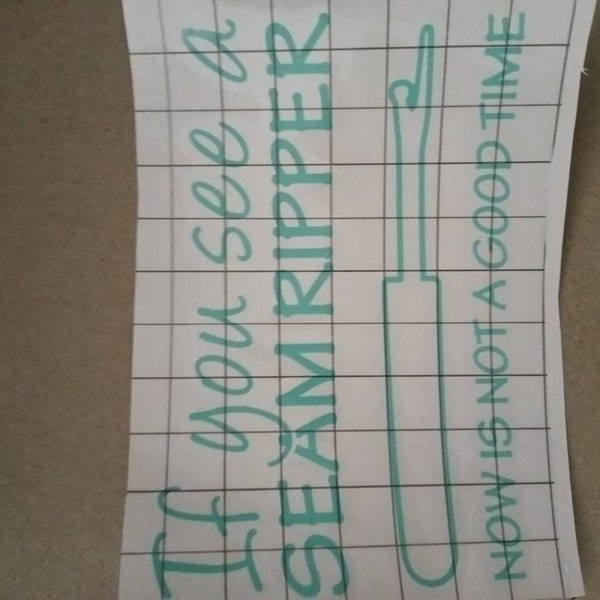 If you see a
SEAM RIPPER
NOW IS NOT A GOOD TIME